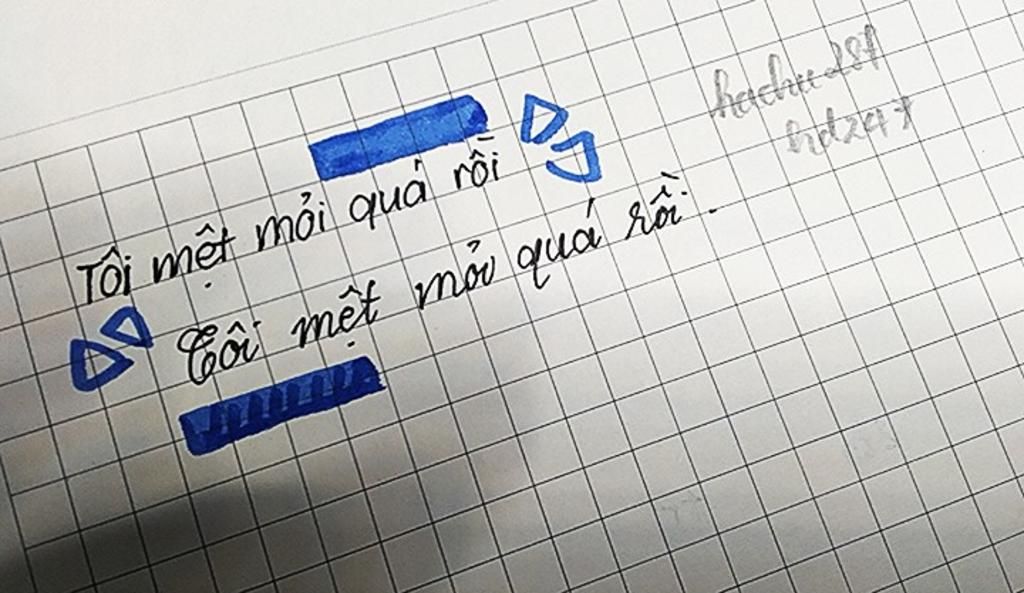 hachu281
hdz47
Tôi mệt mỏi quá rồi
Tôi mệt mỏi quá rồi.